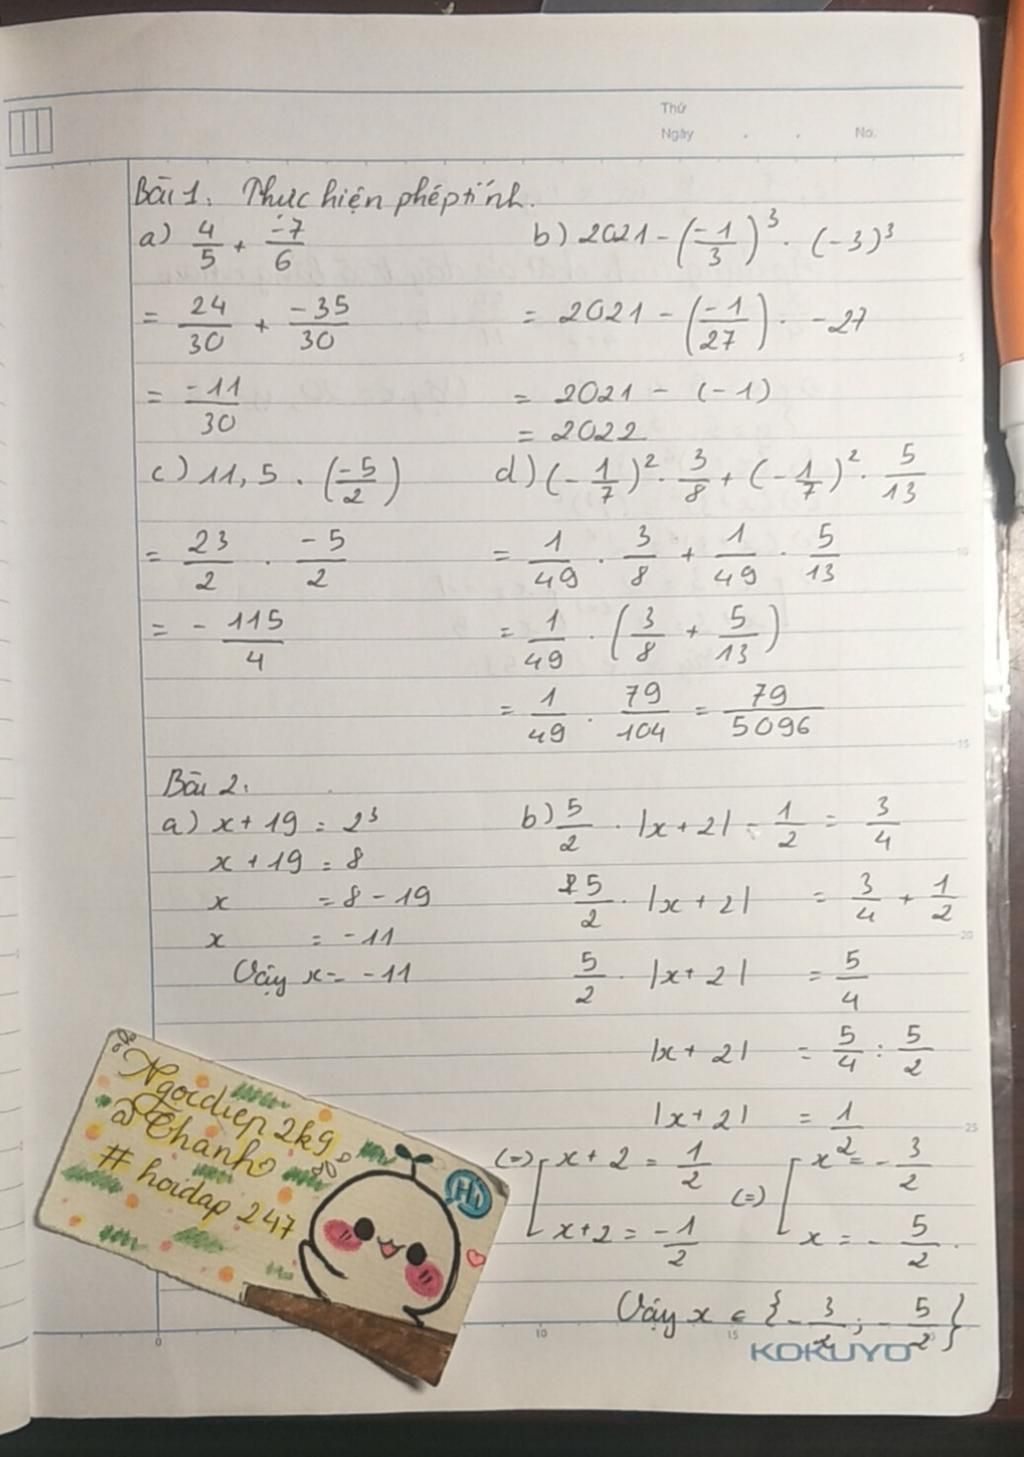 Thứ
Ngày . . No.
Bài 1. Thực hiện phép tính.
a) 4/5 + -7/6
= 24/30 + -35/30
= -11/30
b) 2021 - (-1/3)³ . (-3)³
= 2021 - (-1/27) . -27
= 2021 - (-1)
= 2022
c) 11,5 . (-5/2)
= 23/2 . -5/2
= - 115/4
d) (-1/7)² . 3/8 + (-1/7)² . 5/13
= 1/49 . 3/8 + 1/49 . 5/13
= 1/49 . (3/8 + 5/13)
= 1/49 . 79/104 = 79/5096
Bài 2.
a) x + 19 = 2³
x + 19 = 8
x = 8 - 19
x = -11
Vậy x = -11
b) 5/2 . |x + 2| - 1/2 = 3/4
5/2 . |x + 2| = 3/4 + 1/2
5/2 . |x + 2| = 5/4
|x + 2| = 5/4 : 5/2
|x + 2| = 1/2
(=) [ x + 2 = 1/2 (=) [ x = - 3/2
x + 2 = -1/2 x = - 5/2 .
Vậy x ∈ {- 3/2 ; - 5/2}
Ngocdiep2k9
@Thanh
# hoidap 247
Hi
5
10
15
20
25
0 10 15
KOKUYO